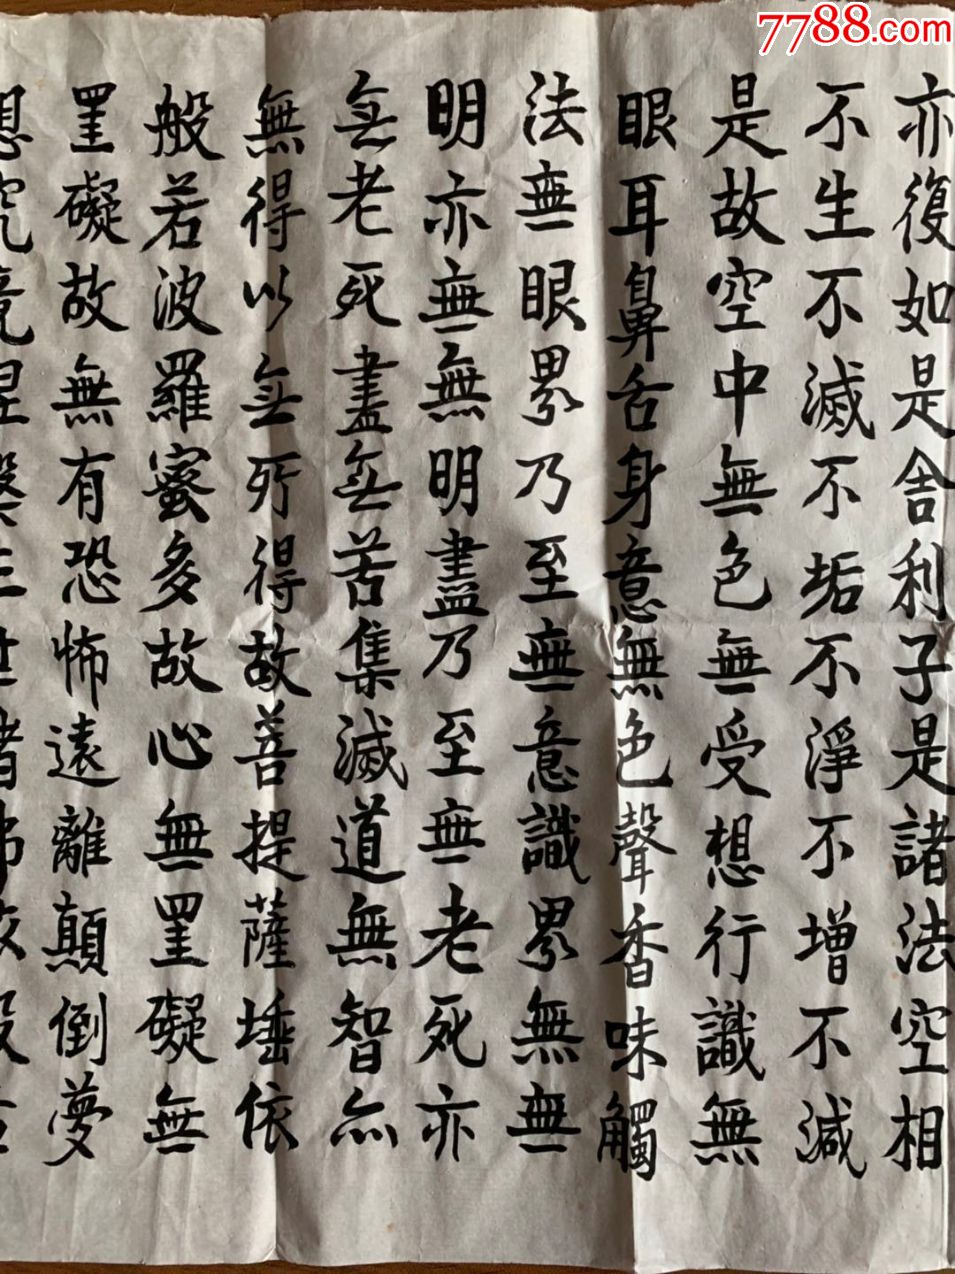 7788.com
亦復如是舍利子是諸法空相
不生不滅不垢不淨不增不減
是故空中無色無受想行識無
眼耳鼻舌身意無色聲香味觸
法無眼界乃至無意識界無無
明亦無無明盡乃至無老死亦
無老死盡無苦集滅道無智亦
無得以無所得故菩提薩埵依
般若波羅蜜多故心無罣礙無
罣礙故無有恐怖遠離顛倒夢
想究竟涅槃三世諸佛